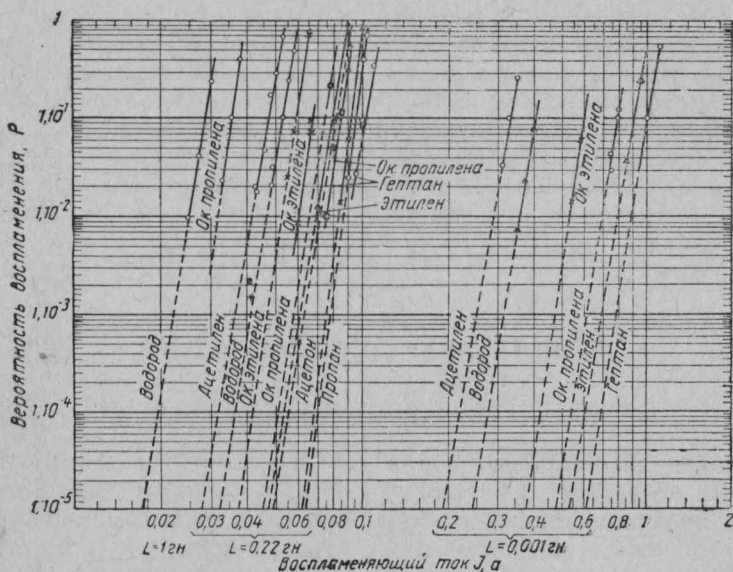 Вероятность воспламенения, P
1
1,10⁻¹
1,10⁻²
1,10⁻³
1,10⁻⁴
1,10⁻⁵
Водород
Ок пропилена
Ацетилен
Водород
Ок этилена
Ок пропилена
Ок этилена
Ацетон
Пропан
Ок пропилена
Гептан
Этилен
Ацетилен
Водород
Ок этилена
Ок пропилена
Этилен
Гептан
0,02 0,03 0,04 0,06 0,08 0,1 0,2 0,3 0,4 0,6 0,8 1 2
L=1гн L=0,22гн L=0,001гн
Воспламеняющий ток J, а